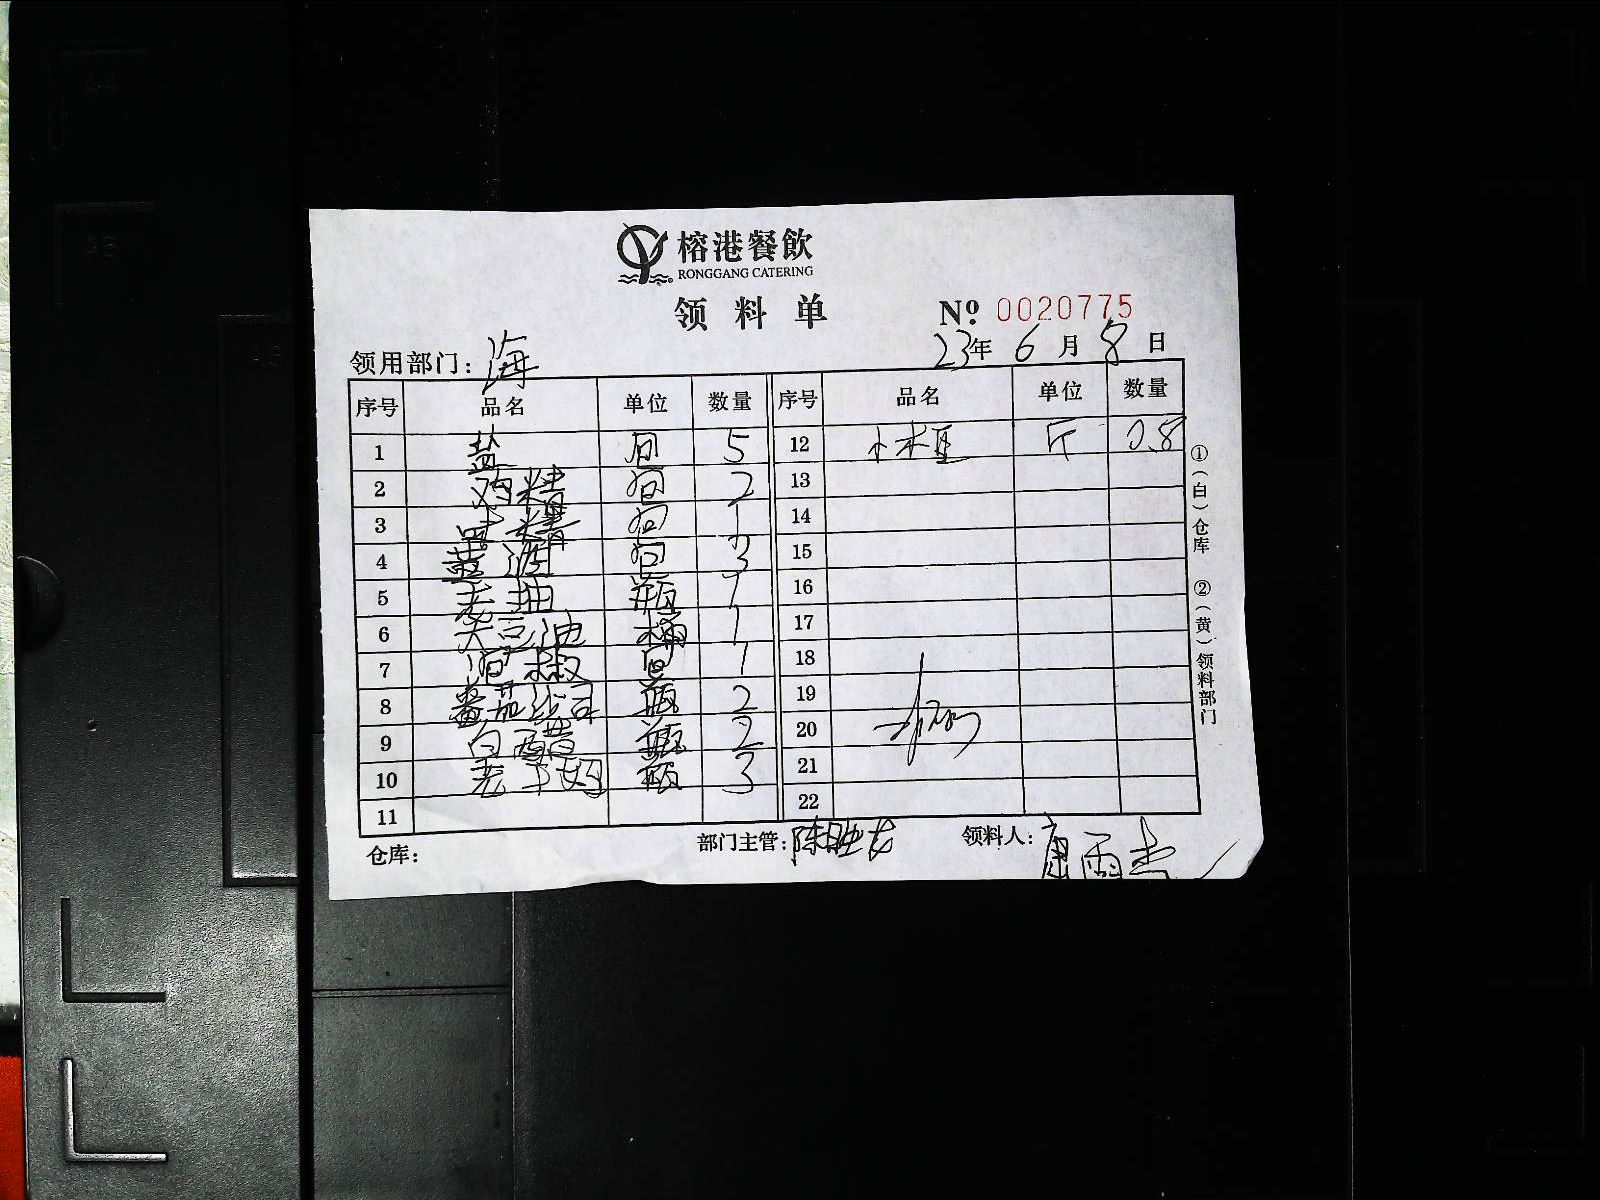 榕港餐飲
RONGGANG CATERING
领料单
№ 0020775
领用部门: 海 23年 6月 8日
序号 品名 单位 数量 序号 品名 单位 数量
1 盐 包 5 12 斤 0.8
2 鸡精 包 2 13
3 味精 包 1 14
4 包 3 15
5 老抽 瓶 1 16
6 大豆油 桶 1 17
7 1 18
8 番茄沙司 瓶 2 19
9 白醋 瓶 2 20
10 老干妈 瓶 3 21
11 22
仓库: 部门主管: 陈 领料人: 康雨
①(白)仓库 ②(黄)领料部门